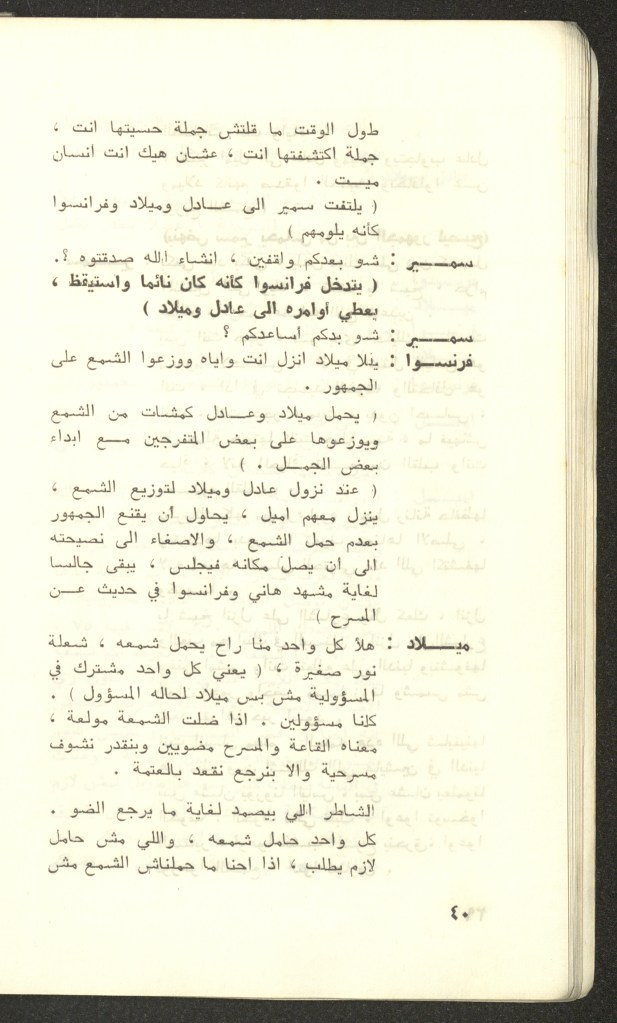 طول الوقت ما قلتش جملة حسيتها انت ،
جملة اكتشفتها انت ، عشان هيك انت انسان
ميـــت .
( يلتفت سمير الى عـــادل وميلاد وفرانسوا
كأنه يلومهم )
سمــــير : شـو بعدكم واقفين ، انشاء الله صدقتوه ؟.
( يتدخل فرانسوا كأنه كان نائما واستيقظ ،
يعطي أوامره الى عادل وميلاد )
سمــــير : شـو بدكم أساعدكم ؟
فرنســوا : يللا ميلاد انزل انت واياه ووزعوا الشمع على
الجمهور .
( يحمل ميلاد وعـــادل كمشات من الشمع
ويوزعوها على بعض المتفرجين مـــع ابداء
بعض الجمـــل . )
( عند نزول عادل وميلاد لتوزيع الشمع ،
ينزل معهم اميل ، يحاول ان يقنع الجمهور
بعدم حمل الشمع ، والاصغاء الى نصيحته
الى ان يصل مكانه فيجلس ، يبقى جالسا
لغاية مشهد هاني وفرانسوا في حديث عـــن
المسرح )
ميــــلاد : هلأ كل واحد منا راح يحمل شمعه ، شعلة
نور صغيرة . ( يعني كل واحد مشترك في
المسؤولية مش بس ميلاد لحاله المسؤول ) .
كلنا مسؤولين . اذا ضلت الشمعة مولعة ،
معناه القاعة والمسرح مضويين وبنقدر نشوف
مسرحية والا بنرجع نقعد بالعتمة .
الشاطر اللي بيصمد لغاية ما يرجع الضو .
كل واحد حامل شمعه ، واللي مش حامل
لازم يطلب ، اذا احنا ما حملناش الشمع مش
٤٠